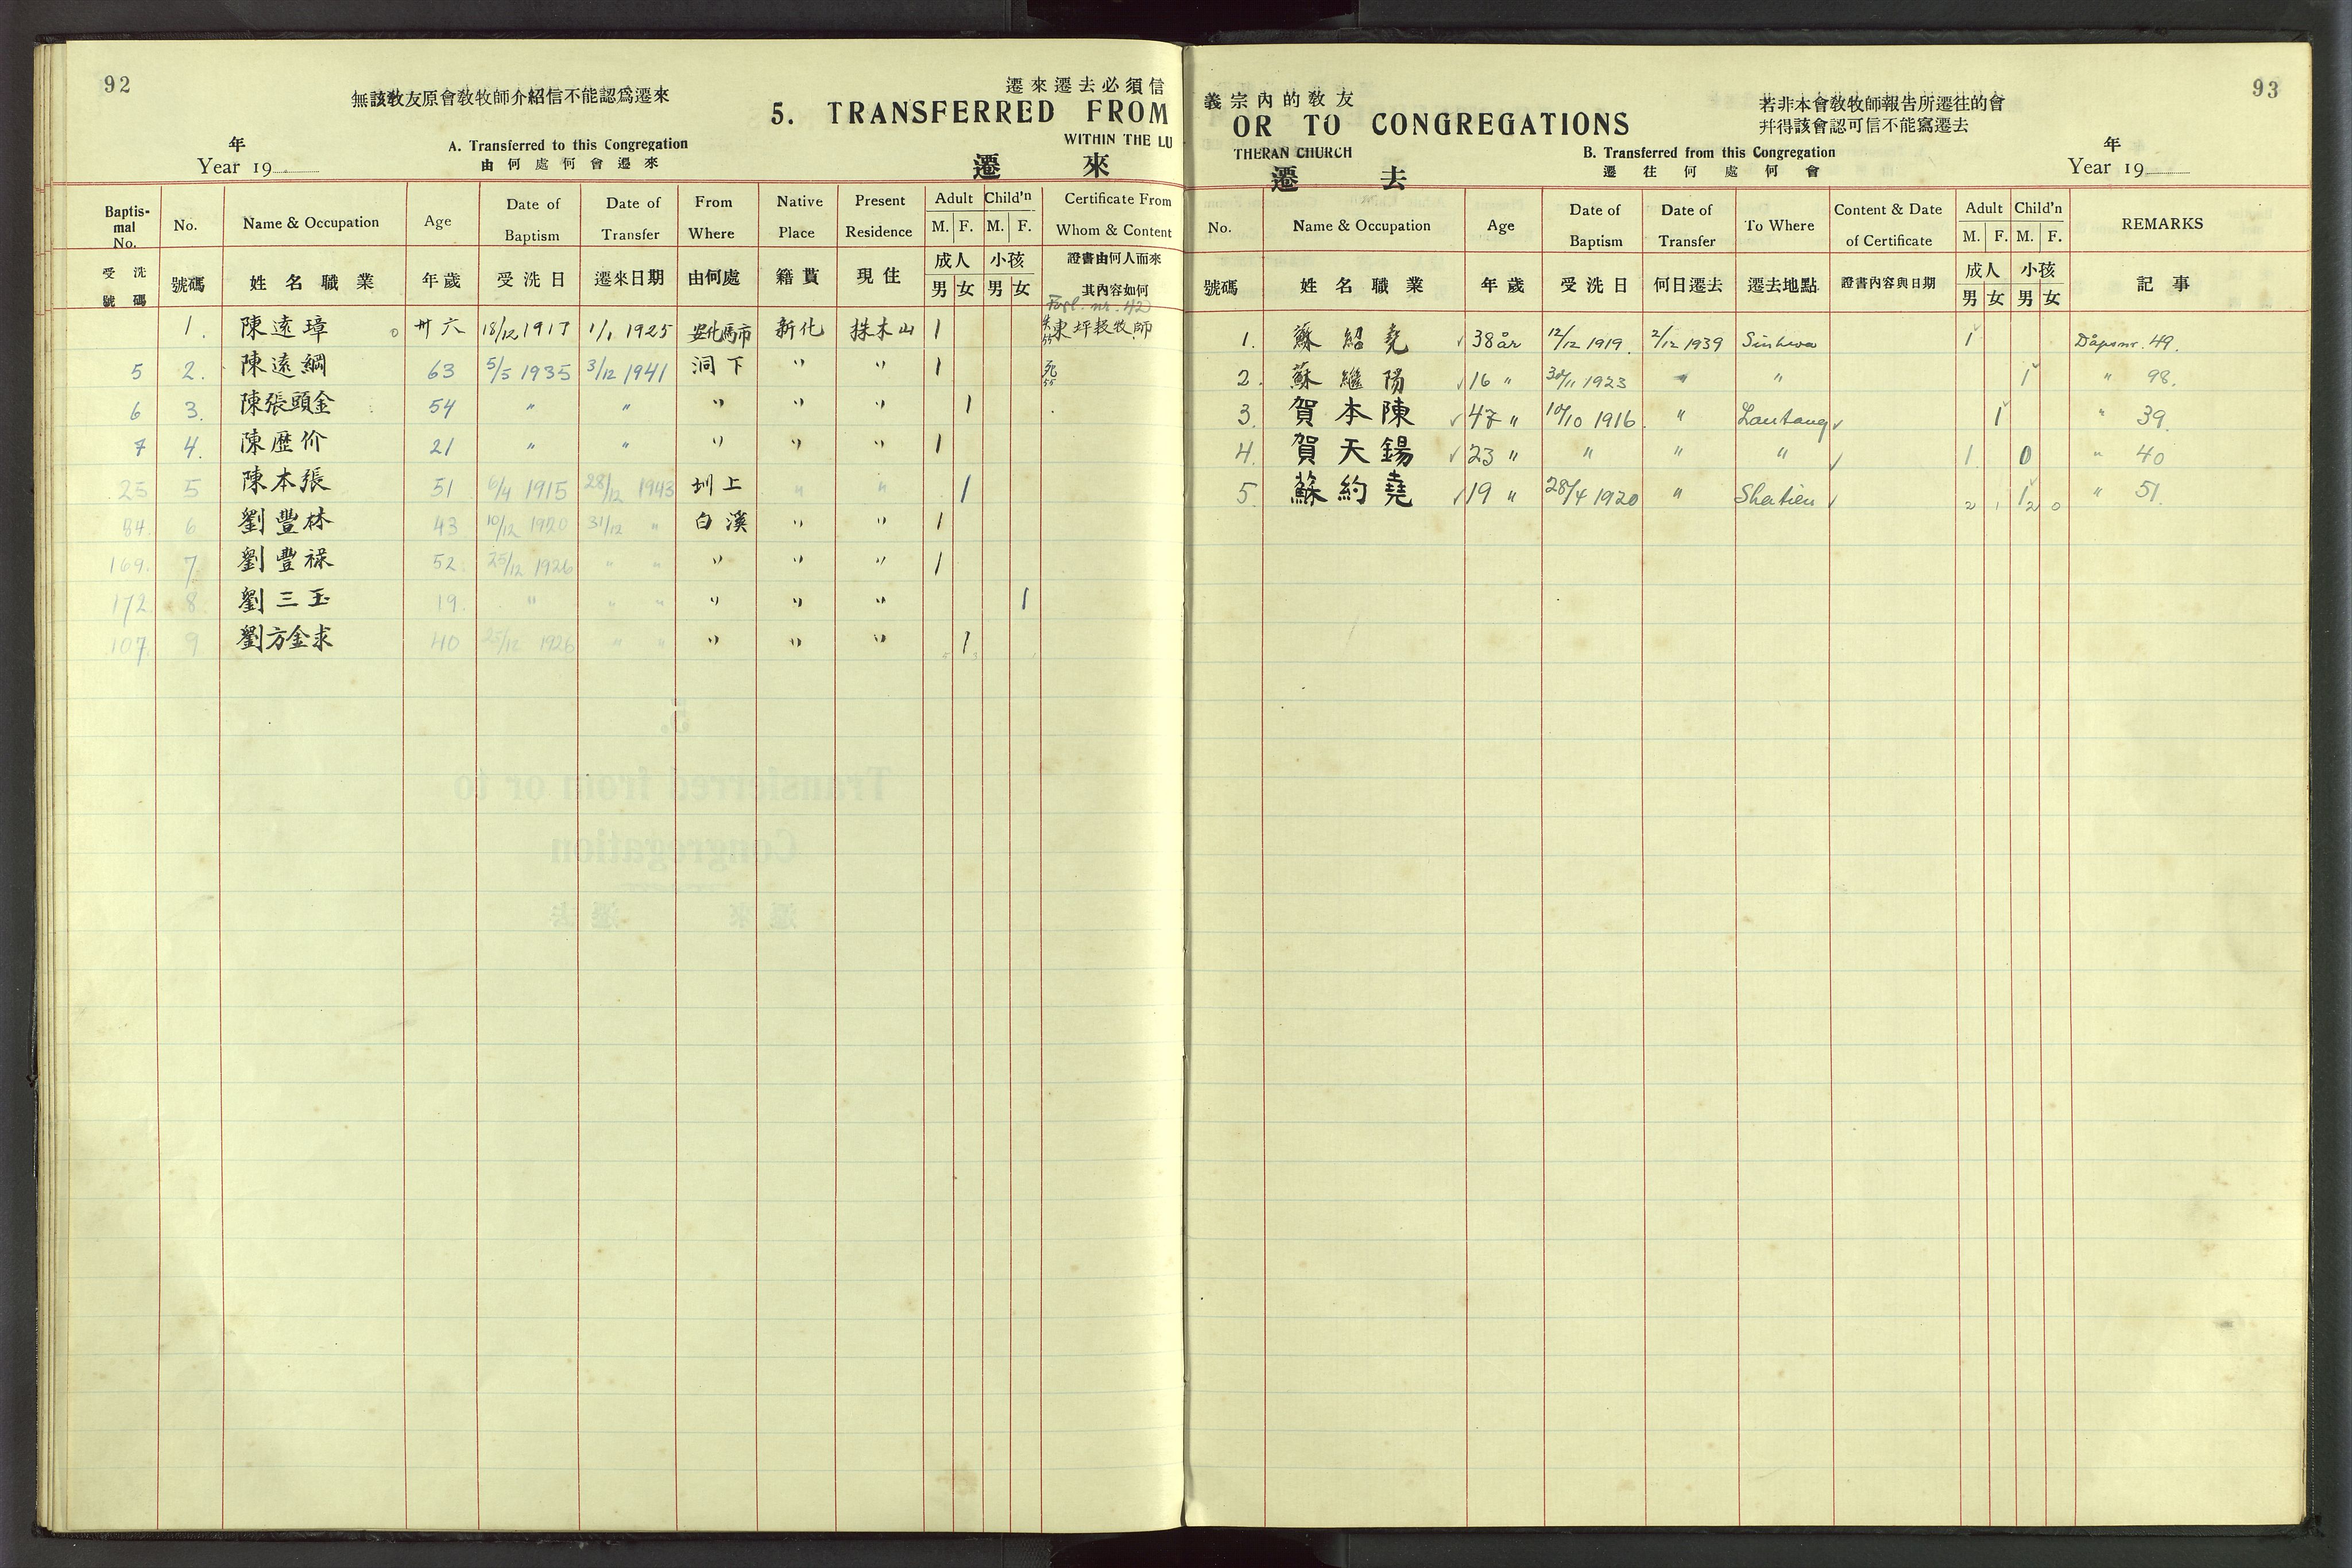 92
無該敎友原會敎牧師介紹信不能認爲遷來
遷來遷去必須信
5. TRANSFERRED FROM
WITHIN THE LU
年
Year 19
A. Transferred to this Congregation
由何處何會遷來
遷 來
Baptismal No. No. Name & Occupation Age Date of Baptism Date of Transfer From Where Native Place Present Residence Adult M. F. Child'n M. F. Certificate From Whom & Content
受洗號碼 號碼 姓名職業 年歲 受洗日 遷來日期 由何處 籍貫 現住 成人 男 女 小孩 男 女 證書由何人而來其內容如何
1. 陳遠璋 卅六 18/12 1917 1/1 1925 新化 株木山 1
5 2. 陳遠綱 63 5/5 1935 3/12 1941 洞下 " " 1 死 55
6 3. 陳張頭金 54 " " " " " 1
7 4. 陳歷价 21 " " " " " 1
25 5 陳本張 51 6/4 1915 28/12 1943 圳上 " " 1
84. 6 劉豐林 43 10/12 1920 31/12 " 白溪 " " 1
169. 7. 劉豐祿 52. 25/12 1926 " " " " " 1
172. 8. 劉三玉 19. " " " " " " 1
107. 9 劉方金求 40 25/12 1926 " " " " " 1
93
義宗內的敎友
OR TO CONGREGATIONS
THERAN CHURCH
若非本會敎牧師報告所遷往的會
幷得該會認可信不能寫遷去
B. Transferred from this Congregation
遷往何處何會
遷 去
年
Year 19
No. Name & Occupation Age Date of Baptism Date of Transfer To Where Content & Date of Certificate Adult M. F. Child'n M. F. REMARKS
號碼 姓名職業 年歲 受洗日 何日遷去 遷去地點 證書內容與日期 成人 男 女 小孩 男 女 記事
1. 蘇紹堯 38 år 12/12 1919. 2/12 1939 Sinhwa 1 Dåpsnr. 49.
2. 蘇繼陽 16 " 30/11 1923 " " 1 " 98.
3. 賀本陳 47 " 10/10 1916. " Lantang 1 " 39.
4. 賀天錫 23 " " " " 1. 0 " 40
5. 蘇約堯 19 " 28/4 1920 " Shatien 1 " 51.
2 1 2 0